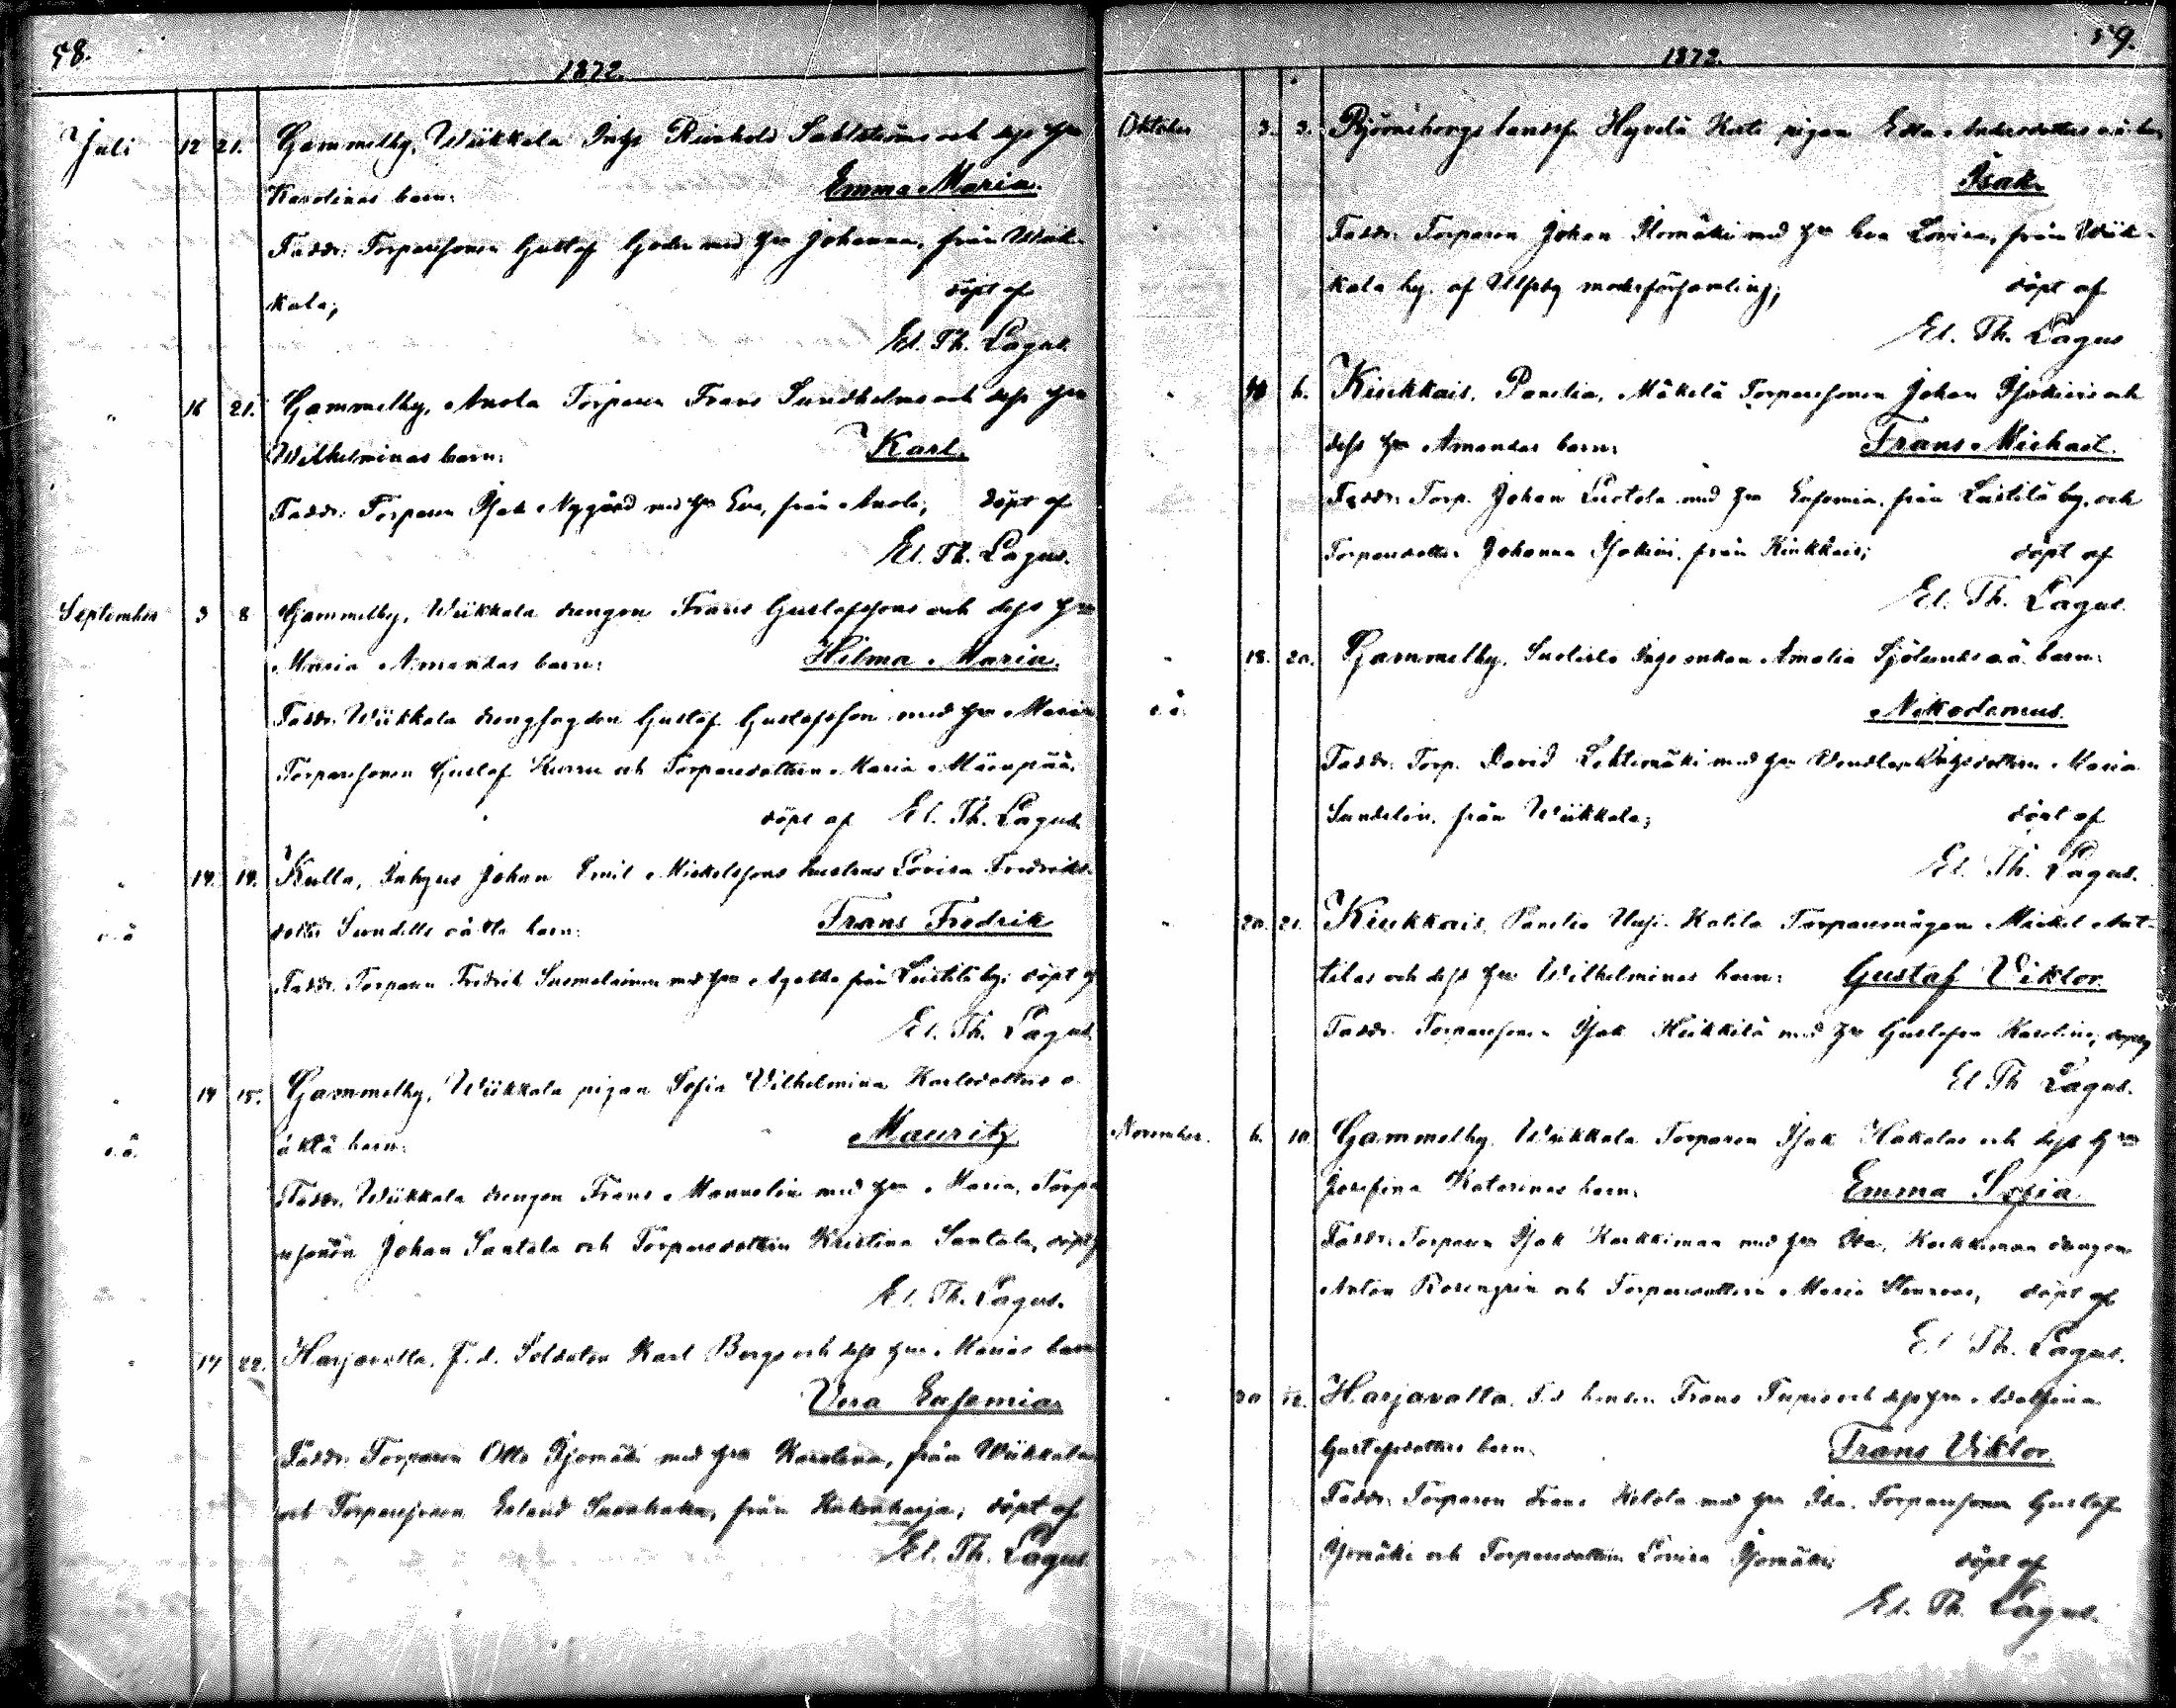 58.
1872.
Juli 12 21. Gammelby, Wiikkala Inhys Reinhold Sahlströms och dess hru
Karolinas barn: Emma Maria.
Faddr: Torparesonen Gustaf med hru Johanna, från Wiik-
kala; döpt af
El. Th. Lagus.
" 16 21. Gammelby, Anola Torparen Frans Sundholms och dess hru
Wilhelminas barn: Karl.
Faddr: Torparen Isak Nygård med hru Eva, från Anola; döpt af
El. Th. Lagus.
September 3 8 Gammelby, Wiikkala drengen Frans Gustafssons och dess hru
Maria Amandas barn: Hilma Maria.
Faddr: Wiikkala drengfogden Gustaf Gustafsson med hru Maria
Torparesonen Gustaf Kurru och Torparedottren Maria Mäenpää;
döpt af El. Th. Lagus.
" 14. 14. Kulla, Inhyses Johan Emil Mickelssons hustrus Lovisa Fredriks-
o.ä. dotter Sundells oäkta barn: Frans Fredrik
Faddr: Torparen Fredrik Suomelainen med hru Agatha från Leistilä by; döpt af
El. Th. Lagus
" 14 15. Gammelby, Wiikkala pigan Sofia Vilhelmina Karlsdotters o-
o.ä. äkta barn: Mauritz
Faddr: Wiikkala drengen Frans Mannelin med hru Maria, Torpa-
resonen Johan Santala och Torparedottren Kristina Santala, döpt af
El. Th. Lagus.
" 17 22. Harjavalta, F.d. Soldaten Karl Bergs och dess hru Marias barn
Vera Eufemia.
Faddr: Torparen Otto Ojomäki med hru Karolina, från Wiikkala
och Torparesonen Erland, från; döpt af
El. Th. Lagus
59.
1872.
Oktober 3. 3. Björneborgs landsf. Hyvelä pigan Edla Andersdotters o.ä. barn
Isak.
Faddr: Torparen Johan Ilomäki med hru Eva Lovisa, från Wiik-
kala by. af Ulfsby moderförsamling; döpt af
El. Th. Lagus
" 6. Kiukkais, Panelia, Mäkelä Torparesonen Johan och
dess hru Amandas barn: Frans Michael.
Faddr: Torp. Johan med hru Eufemia, från Leistilä by, och
Torparedottren Johanna, från Kiukkais; döpt af
El. Th. Lagus.
" 18. 20. Gammelby, Suolisto Inhys enkan Amalia Sjölunds o.ä. barn:
o.ä. Nikodemus.
Faddr: Torp. David Lehtimäki med hru Vendla, Inhysdottren Maria
Sundelin, från Wiikkala; döpt af
El. Th. Lagus.
" 20. 21. Kiukkais, Panelia Uusi-Katila Torparemågen Mickel Ant-
tilas och dess hru Wilhelminas barn: Gustaf Viktor.
Faddr: Torparesonen Isak Heikkilä med hru Gustafva Karolina; döpt af
El Th Lagus.
November. 6. 10. Gammelby, Wiikkala Torparen Isak Hakalas och dess hru
Josefina Katarinas barn: Emma Sofia.
Faddr: Torparen Isak Korkkiman med hru Ida, Korkkiman drengen
Anton Rosengren och Torparedottren Maria Stenroos, döpt af
El Th. Lagus.
" 12. Harjavalta, F.d Frans och dess hru Adolfina
Gustafsdotters barn: Frans Viktor.
Faddr: Torparen Frans Ketola med hru Ida, Torparesonen Gustaf
Ojomäki och Torparedottren Lovisa Ojomäki; döpt af
El. Th. Lagus.